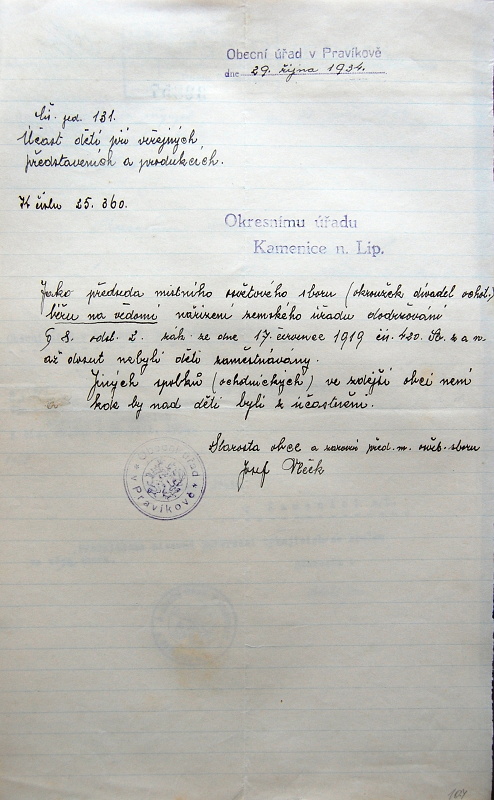 Obecní úřad v Pravíkově
dne 29. října 1934.
Čís. jed. 131.
Účast dětí při veřejných
představeních a produkcích.
K číslu 25.360.
Okresnímu úřadu
Kamenice n. Lip.
Jako předseda místního osvětového sboru (okroužek divadel ochot.)
béru na vědomí nařízení zemského úřadu dodržování
§ 8. odst. 2. zák. ze dne 17. července 1919 čís. 420. Sb. z a n.
až dosut nebyli děti zaměstnávány.
Jiných spolků (ochotnických) ve zdejší obci není
kde by nad děti byli z účastněn.
Starosta obce a zároveň před. m. osvěb. sboru
Josef Vlček
Obecní úřad
v Pravíkově